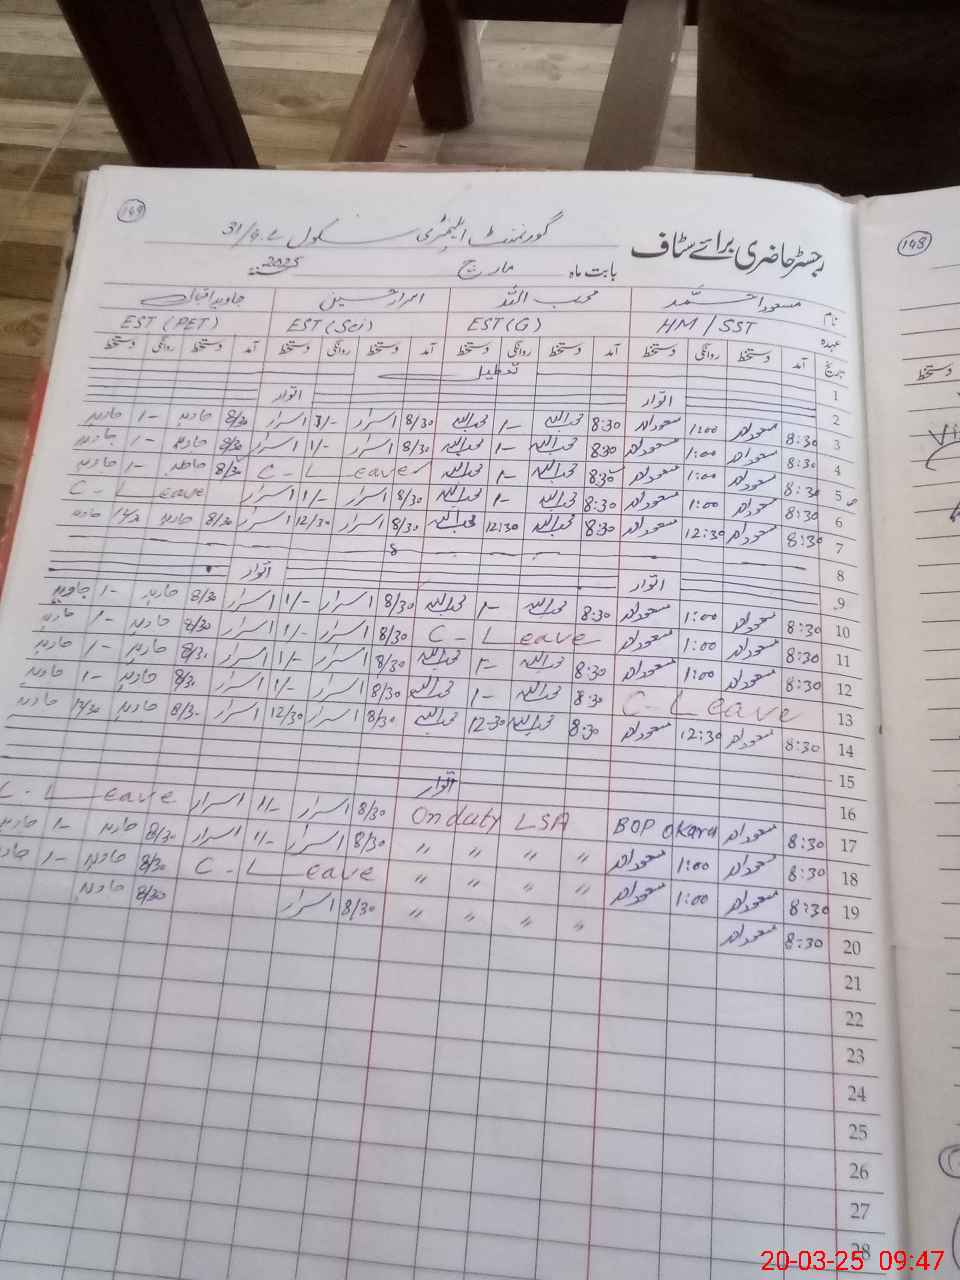 149
گورنمنٹ ایلیمنٹری سکول 31/4.L
رجسٹر حاضری برائے سٹاف
148
بابت ماہ مارچ 2025
نام مسعود احمد محب اللہ اسرار حسین جاوید اقبال
عہدہ HM/SST EST(G) EST(Sci) EST(PET)
تاریخ آمد دستخط روانگی دستخط آمد دستخط روانگی دستخط آمد دستخط روانگی دستخط آمد دستخط روانگی دستخط
1 تعطیل
2 اتوار اتوار
3 8:30 مسعود احمد 1:00 مسعود احمد 8:30 محب اللہ 1- محب اللہ 8/30 اسرار 1/- اسرار 8/30 جاوید 1- جاوید
4 8:30 مسعود احمد 1:00 مسعود احمد 8:30 محب اللہ 1- محب اللہ 8/30 اسرار 1/- اسرار 8/30 جاوید 1- جاوید
5 8:30 مسعود احمد 1:00 مسعود احمد 8:30 محب اللہ 1- محب اللہ C-Leave 8/30 جاوید 1- جاوید
6 8:30 مسعود احمد 1:00 مسعود احمد 8:30 محب اللہ 1- محب اللہ 8/30 اسرار 1/- اسرار C-Leave
7 8:30 مسعود احمد 12:30 مسعود احمد 8:30 محب اللہ 12:30 محب اللہ 8/30 اسرار 12/30 اسرار 8/30 جاوید 12/30 جاوید
8
9 اتوار اتوار
10 8:30 مسعود احمد 1:00 مسعود احمد 8:30 محب اللہ 1- محب اللہ 8/30 اسرار 1/- اسرار 8/30 جاوید 1- جاوید
11 8:30 مسعود احمد 1:00 مسعود احمد C-Leave 8/30 اسرار 1/- اسرار 8/30 جاوید 1- جاوید
12 8:30 مسعود احمد 1:00 مسعود احمد 8:30 محب اللہ 1- محب اللہ 8/30 اسرار 1/- اسرار 8/30 جاوید 1- جاوید
13 C-Leave 8:30 محب اللہ 1- محب اللہ 8/30 اسرار 1/- اسرار 8/30 جاوید 1- جاوید
14 8:30 مسعود احمد 12:30 مسعود احمد 8:30 محب اللہ 12-30 محب اللہ 8/30 اسرار 12/30 اسرار 8/30 جاوید 12/30 جاوید
15
16 اتوار
17 8:30 مسعود احمد BOP Okara On duty LSA 8/30 اسرار 1/- اسرار C-Leave
18 8:30 مسعود احمد 1:00 مسعود احمد " " " " 8/30 اسرار 1/- اسرار 8/30 جاوید 1- جاوید
19 8:30 مسعود احمد 1:00 مسعود احمد " " " " C-Leave 8/30 جاوید 1- جاوید
20 8:30 مسعود احمد " " " " 8/30 اسرار 8/30 جاوید
21
22
23
24
25
26
27
28
دستخط
20-03-25 09:47